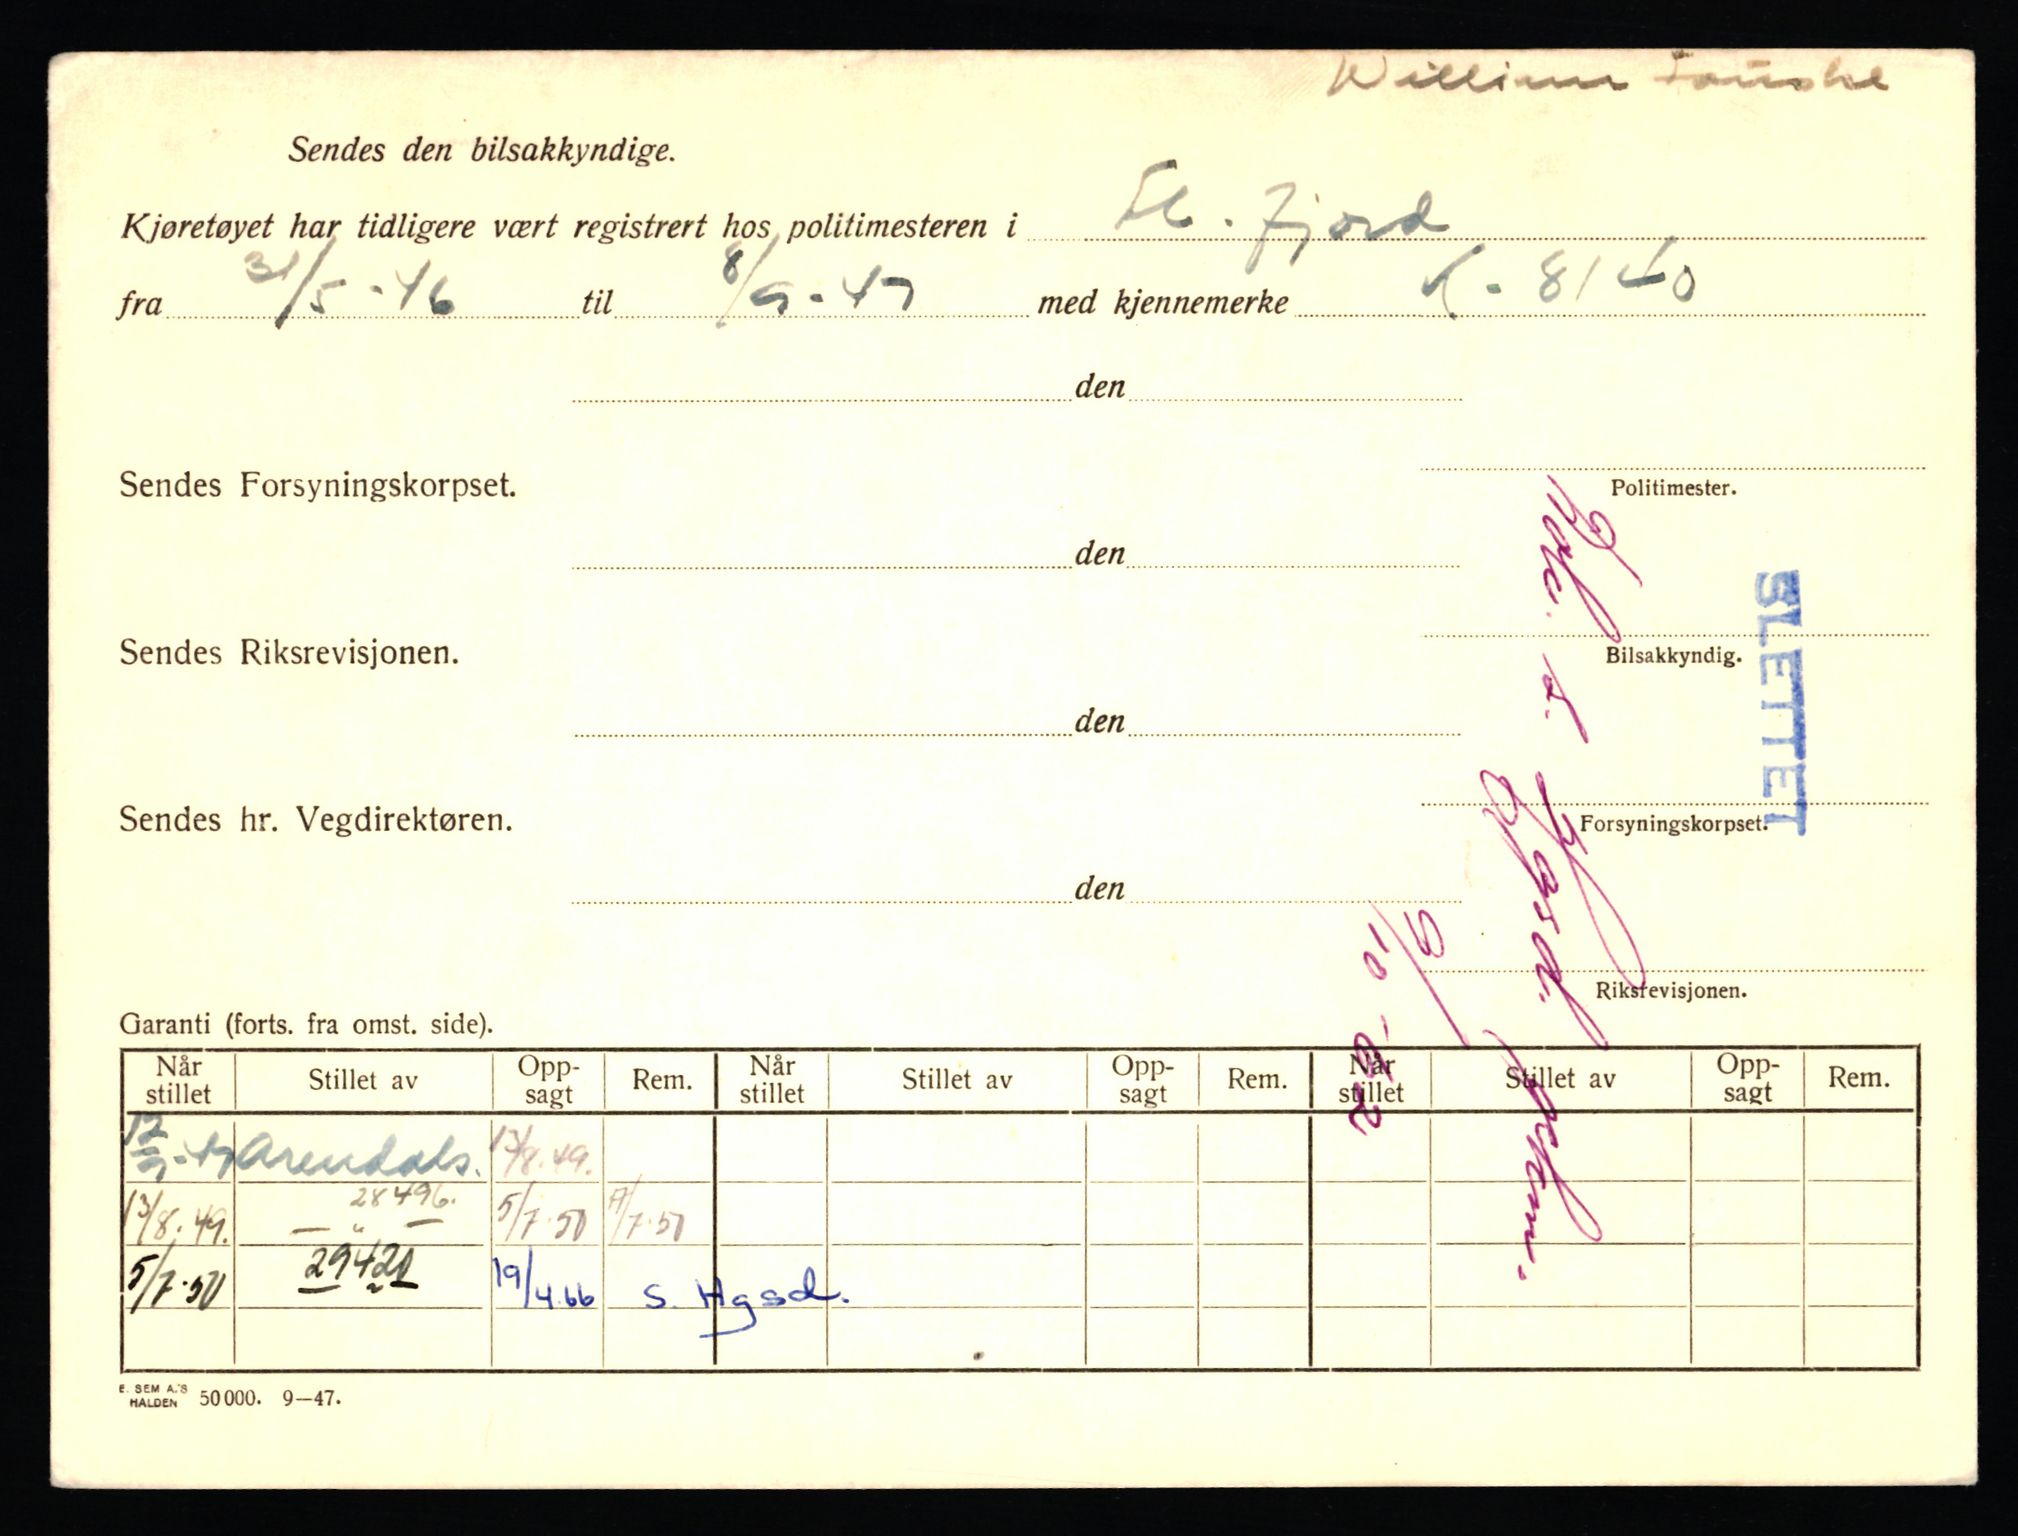 William
Sendes den bilsakkyndige.
Kjøretøyet har tidligere vært registrert hos politimesteren i Fl. fjord
fra 31/5 - 46 til 8/9 - 47 med kjennemerke K - 8140
den
Politimester.
Sendes Forsyningskorpset.
den
Bilsakkyndig.
Sendes Riksrevisjonen.
den
Forsyningskorpset.
Sendes hr. Vegdirektøren.
den
Riksrevisjonen.
SLETTET
Hgsd.
9/10 - 62
Garanti (forts. fra omst. side).
Når stillet Stillet av Opp- sagt Rem. Når stillet Stillet av Opp- sagt Rem. Når stillet Stillet av Opp- sagt Rem.
12/9 - 47 Arendals. 13/8.49.
13/8.49. — " — 28496. 5/7.50 7/7.50
5/7.50 29420 19/4.66 S. Hgsd.
E. SEM A.'S HALDEN 50 000. 9—47.